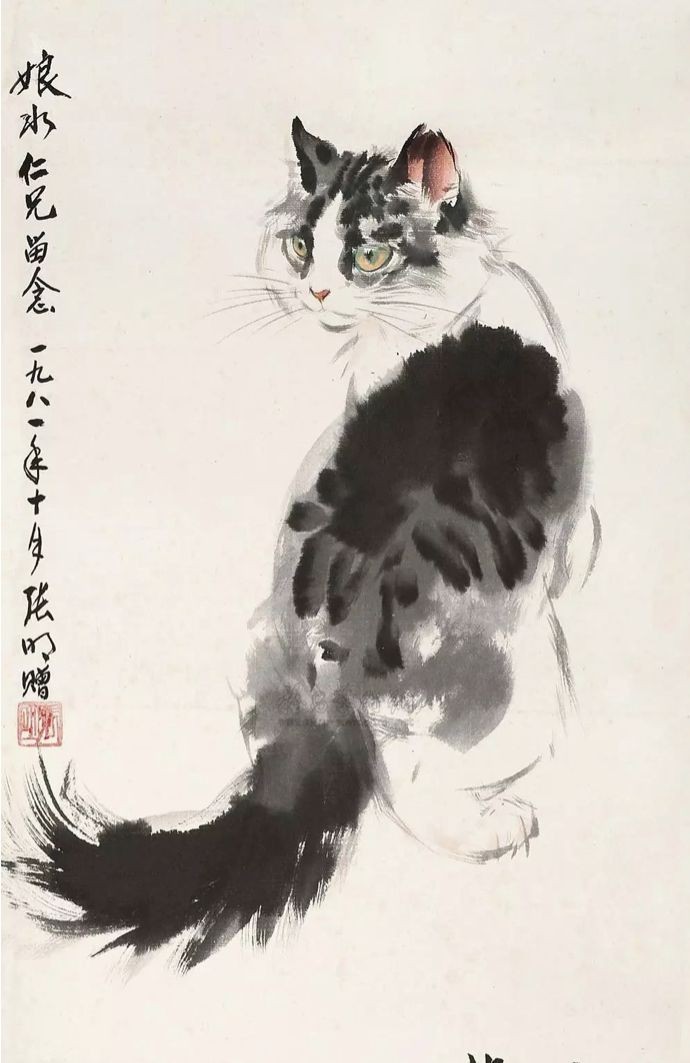 娘水仁兄留念 一九八一年十月 张明赠